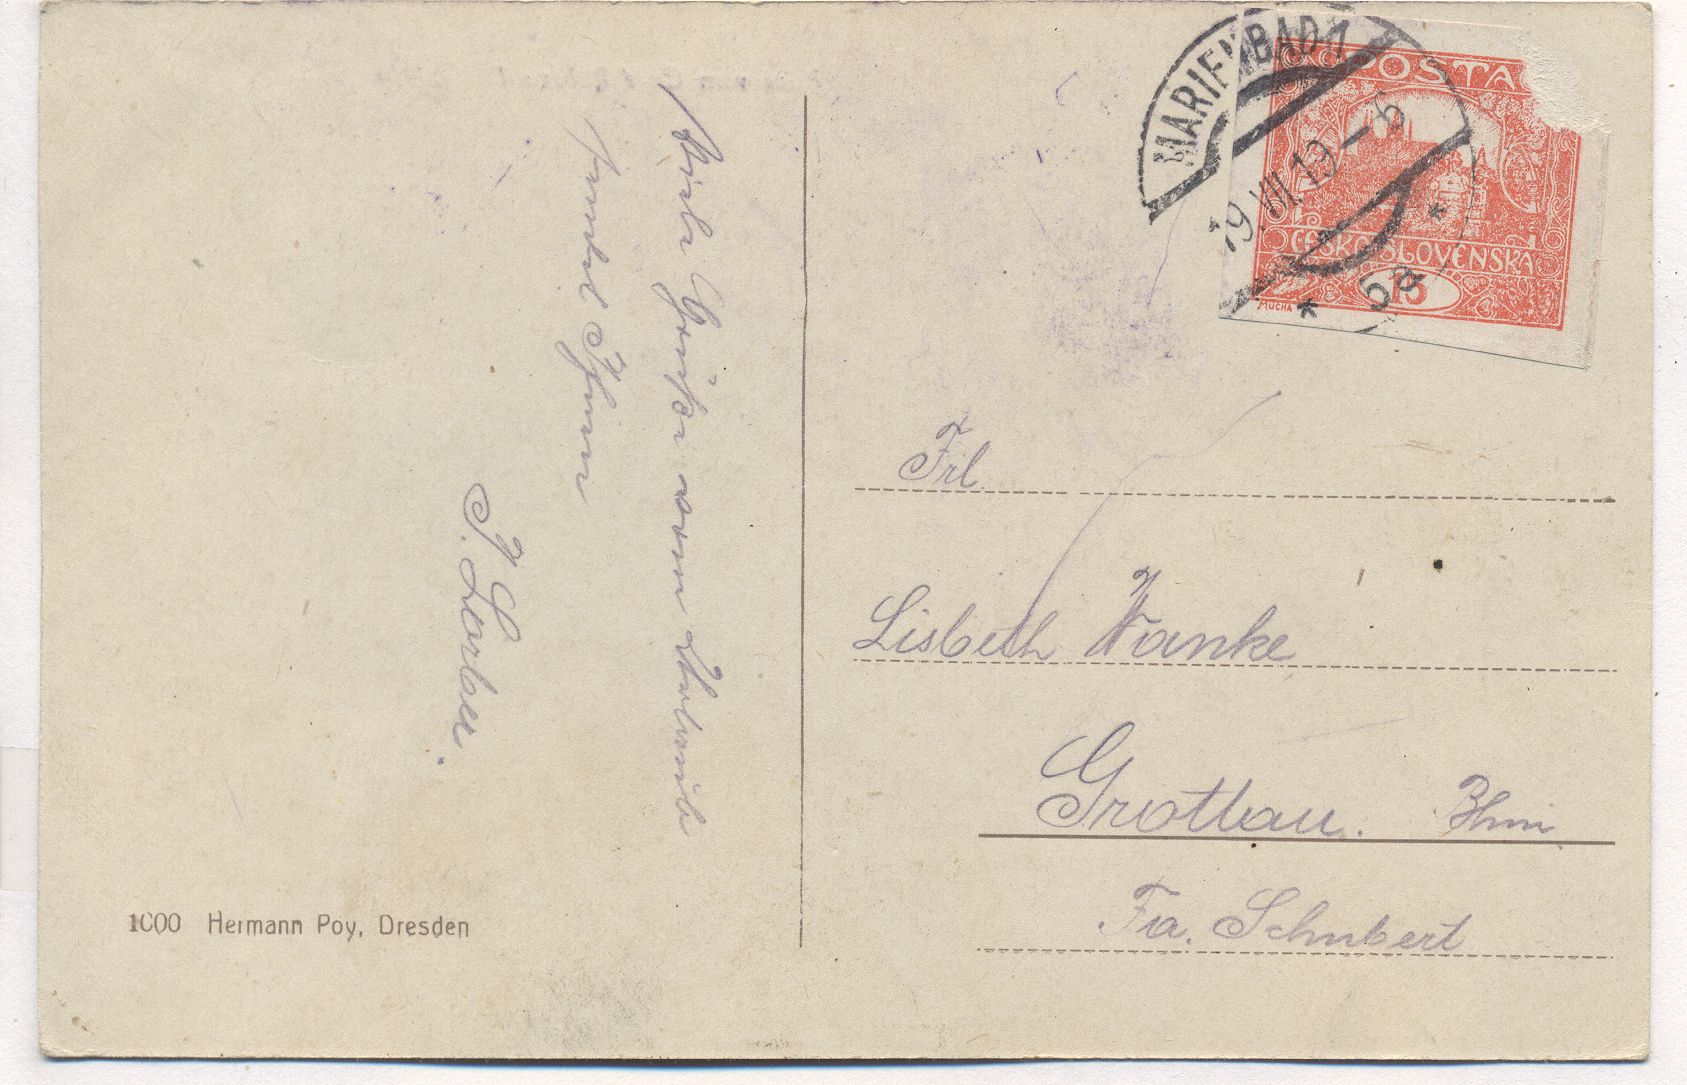 Viele Grüße vom Urlaub
sendet Ihnen
J. Lorber.
1000 Hermann Poy, Dresden
MARIENBAD 1
19.VII.19-6
* 5a *
POSTA
ČESKOSLOVENSKÁ
15
MUCHA
Frl.
Lisbeth Wanke
Grottau. Bhm.
Fa. Schubert